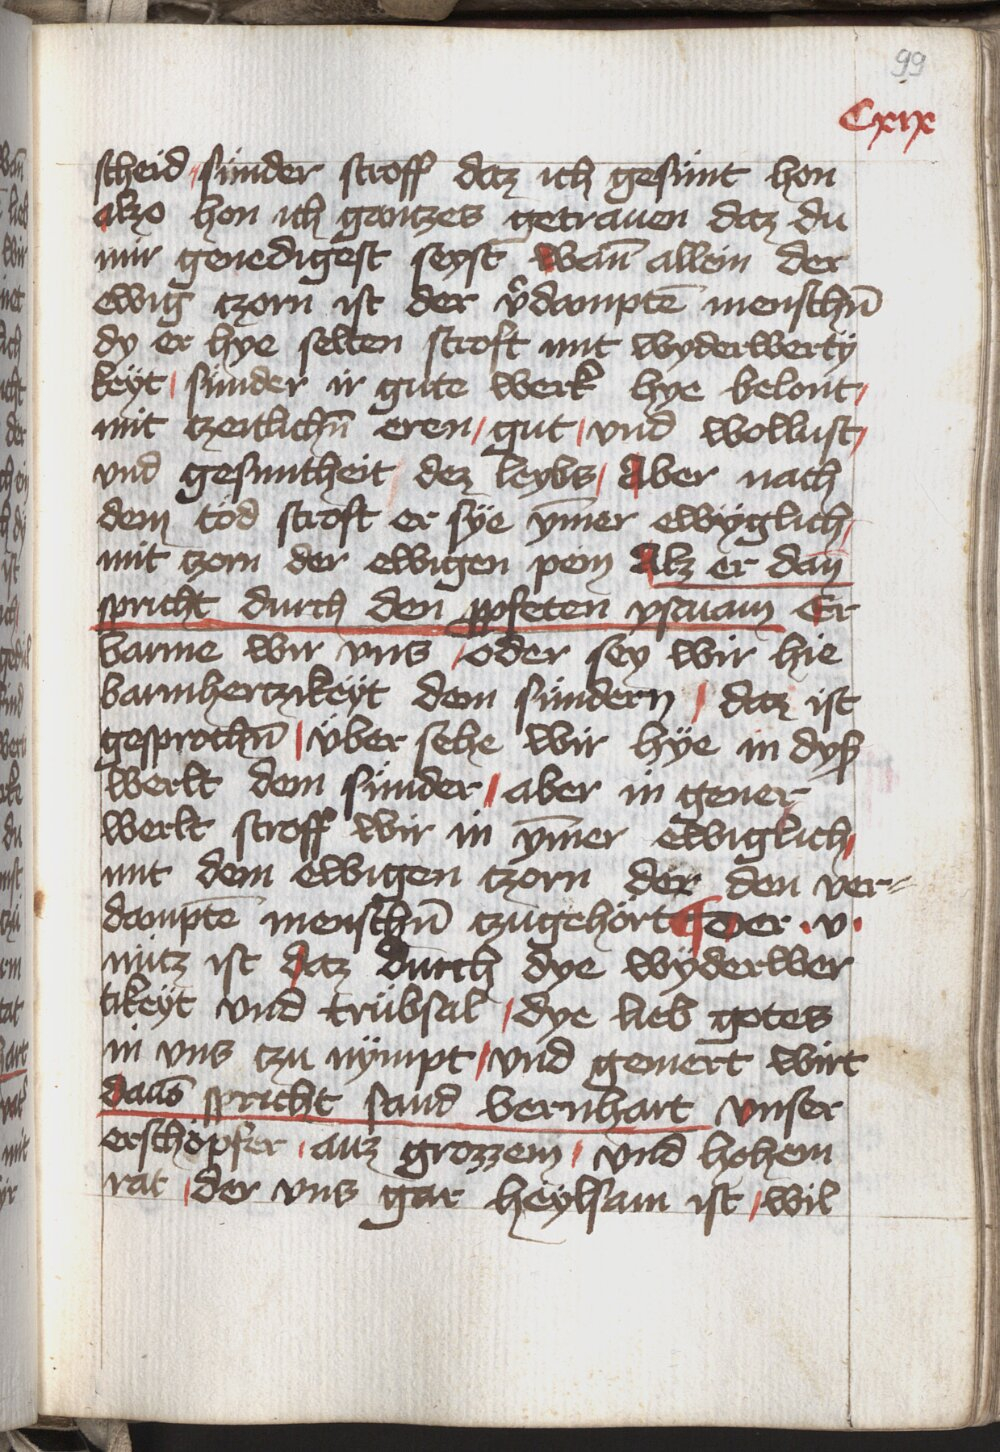 99
Cxix
scheid sünder stroff daz ich gesünt hon
alzo hon ich gantzes getrauen daz du
mir genedigest seyst wan̄ allein der
ewig czorn ist der v̂dampten̄ menschn̄
dy er hye selten stroft mit wyderwerty
keyt / sünder ir gute werk hye belont /
mit czeitlichn̄ eren / gut / vnd wollust /
vnd gesuntheit dez leybs / Aber nach
dem tod stroft er sÿe ym̄er ewÿglich /
mit czorn der ewigen pein Alz er dan̄
spricht durch den ꝓpfeten ysaiam Er
barme wir vns / oder sey wir hie
barmhertzikeÿt dem sündern / daz ist
gesprochn̄ / über sehe wir hÿe in dyß
werlt dem sünder / aber in gener
werlt stroff wir in ym̄er ewiglich /
mit dem ewigen czorn der den ver=
dampte̅ menschn̄ czugehört ¶ Der . v .
nütz ist daz durch dye wÿderwer
tikeÿt vnd trübsal / dye lieb gotes
in vns czu nÿmpt / vnd gemert wirt
daūs spricht sand bernhart vnser
erschöpfer / auz grozzem / vnd hohem
rat / der vns gar heÿlsam ist / wil